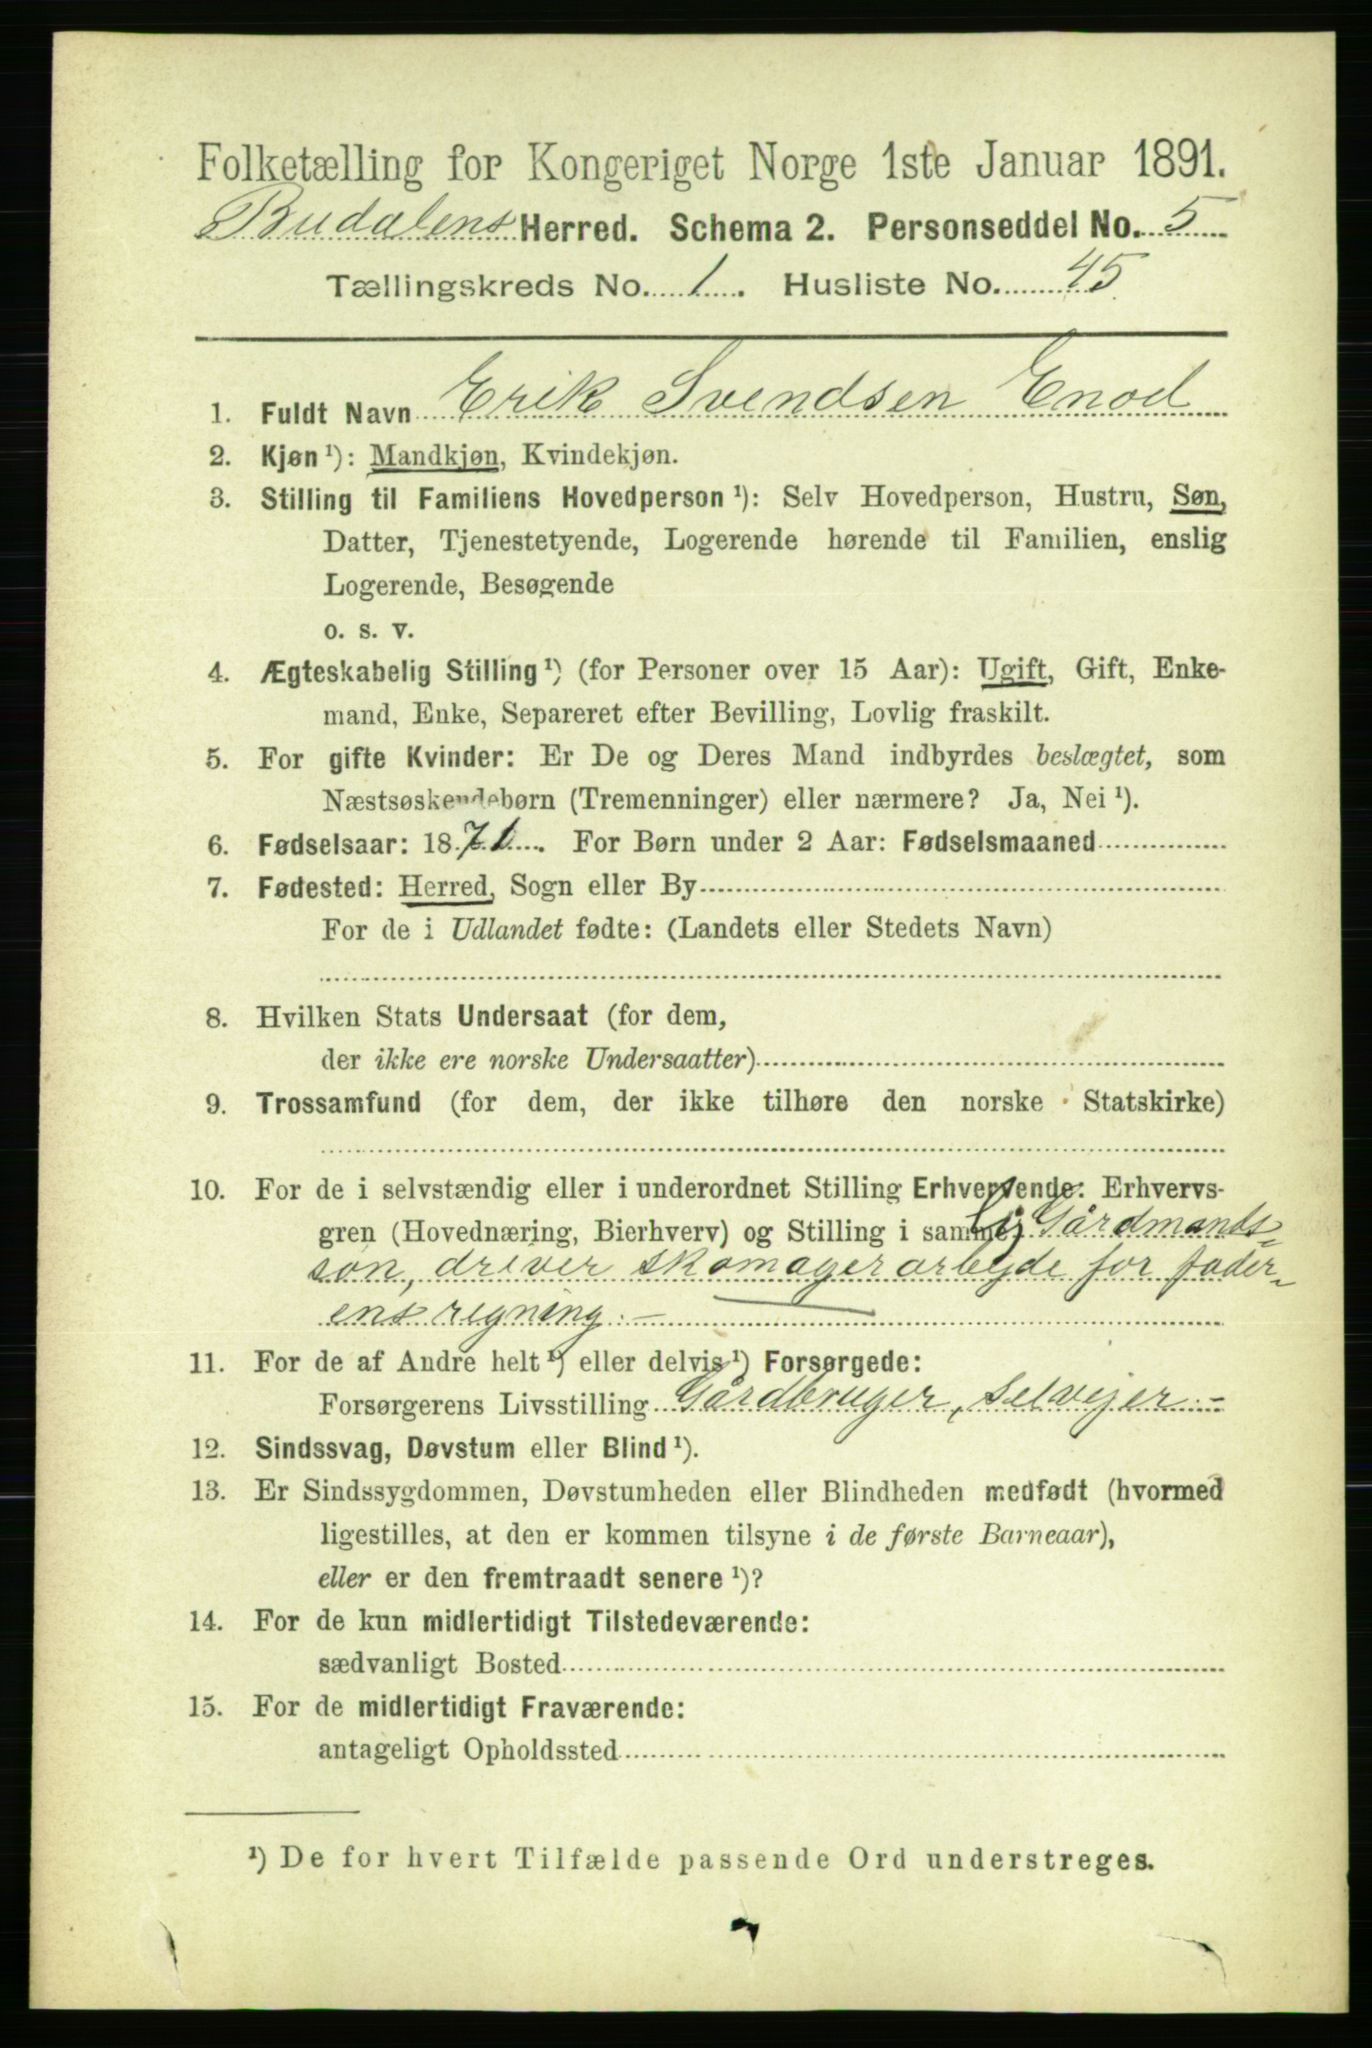 Folketælling for Kongeriget Norge 1ste Januar 1891.
Budalens Herred. Schema 2. Personseddel No. 5
Tællingskreds No. 1. Husliste No. 45
1. Fuldt Navn Erik Svendsen Enod
2. Kjøn¹): Mandkjøn, Kvindekjøn.
3. Stilling til Familiens Hovedperson¹): Selv Hovedperson, Hustru, Søn,
Datter, Tjenestetyende, Logerende hørende til Familien, enslig
Logerende, Besøgende
o. s. v.
4. Ægteskabelig Stilling¹) (for Personer over 15 Aar): Ugift, Gift, Enke-
mand, Enke, Separeret efter Bevilling, Lovlig fraskilt.
5. For gifte Kvinder: Er De og Deres Mand indbyrdes beslægtet, som
Næstsøskendebørn (Tremenninger) eller nærmere? Ja, Nei¹).
6. Fødselsaar: 1871. For Børn under 2 Aar: Fødselsmaaned
7. Fødested: Herred, Sogn eller By
For de i Udlandet fødte: (Landets eller Stedets Navn)
8. Hvilken Stats Undersaat (for dem,
der ikke ere norske Undersaatter)
9. Trossamfund (for dem, der ikke tilhøre den norske Statskirke)
10. For de i selvstændig eller i underordnet Stilling Erhvervende: Erhvervs-
gren (Hovednæring, Bierhverv) og Stilling i samme Gårdmands-
søn, driver skomagerarbejde for fader-
ens regning. —
11. For de af Andre helt¹) eller delvis¹) Forsørgede:
Forsørgerens Livsstilling Gårdbruger, selvejer. —
12. Sindssvag, Døvstum eller Blind¹).
13. Er Sindssygdommen, Døvstumheden eller Blindheden medfødt (hvormed
ligestilles, at den er kommen tilsyne i de første Barneaar),
eller er den fremtraadt senere¹)?
14. For de kun midlertidigt Tilstedeværende:
sædvanligt Bosted
15. For de midlertidigt Fraværende:
antageligt Opholdssted
¹) De for hvert Tilfælde passende Ord understreges.